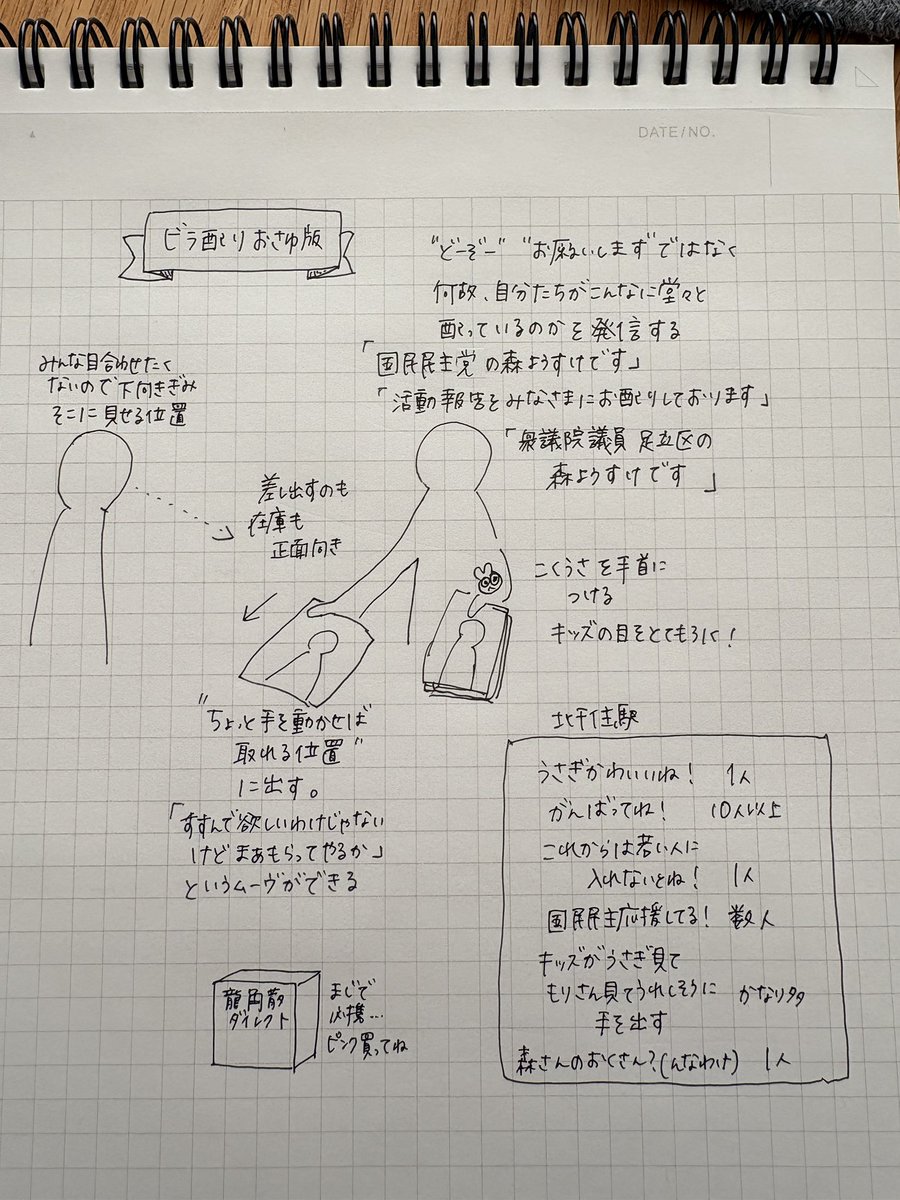 DATE/NO.
ビラ配り おさゆ版
"どーぞー" "お願いします"ではなく
何故、自分たちがこんなに堂々と
配っているのかを発信する
「国民民主党の森ようすけです」
「活動報告をみなさまにお配りしております」
「衆議院議員 足立区の
森ようすけです」
みんな目合わせたく
ないので下向きぎみ
そこに見せる位置
差し出すのも
在庫も
正面向き
こくうさを手首に
つける
キッズの目をとてもひく!
"ちょっと手を動かせば
取れる位置"
に出す。
「すすんで欲しいわけじゃない
けどまあもらってやるか」
というムーヴができる
北千住駅
うさぎかわいいね! 1人
がんばってね! 10人以上
これからは若い人に
入れないとね! 1人
国民民主応援してる! 数人
キッズがうさぎ見て
もりさん見てうれしそうに かなり多
手を出す
森さんのおくさん?(んなわけ) 1人
龍角散
ダイレクト
まじで
必携…
ピンク買ってね